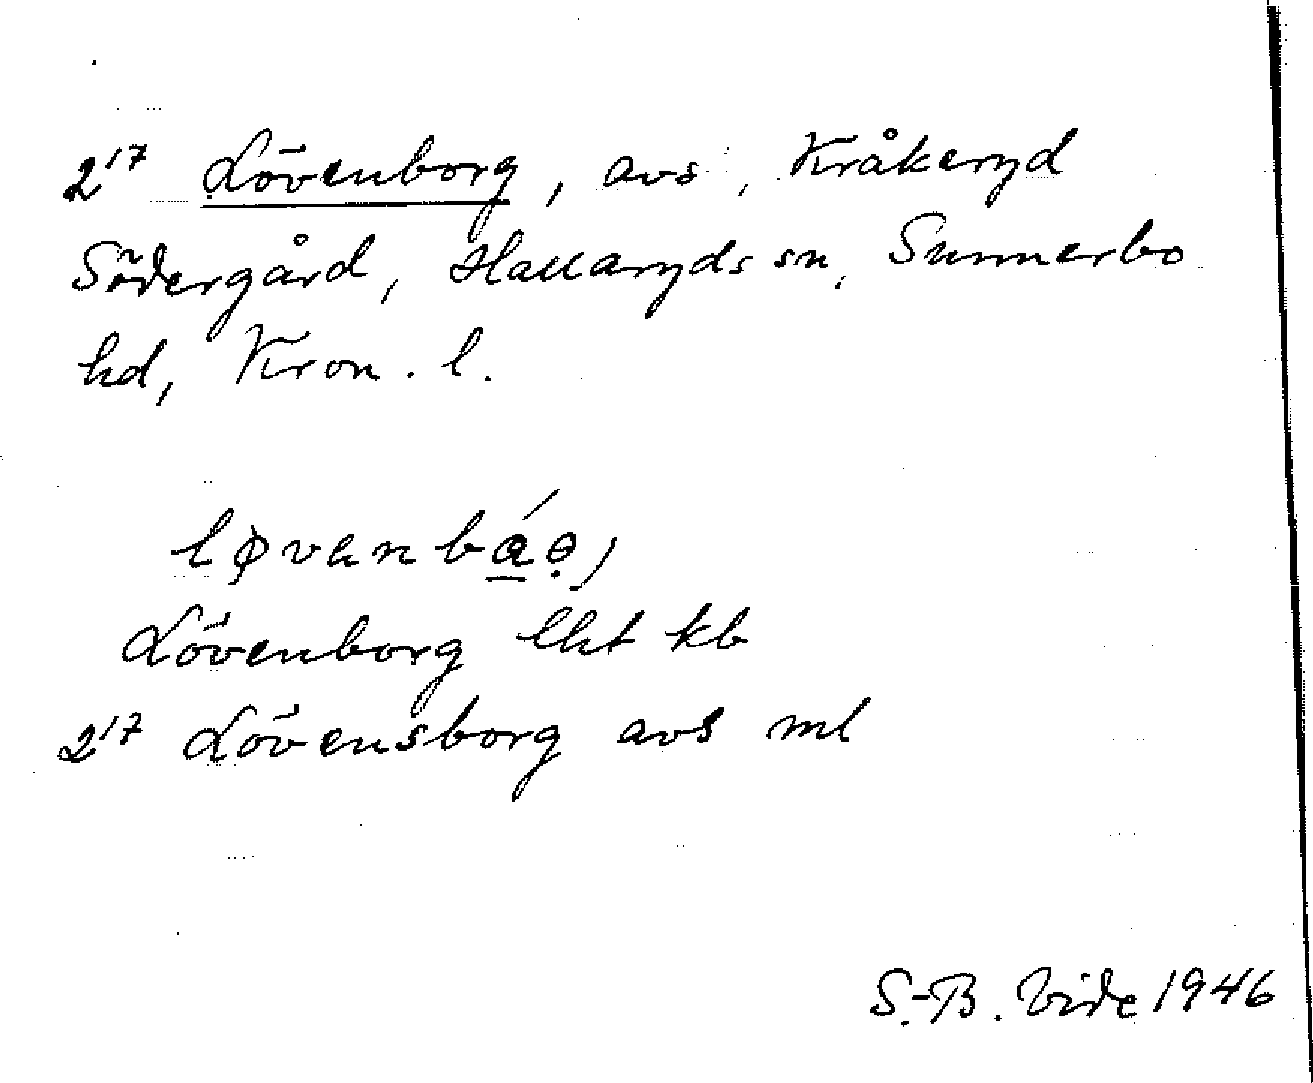 2¹⁷ Lövenborg, avs, Kråkeryd
Södergård, Hallaryds sn, Sunnerbo
hd, Kron. l.
Lövenborg lht kb
2¹⁷ Lövensborg avs ml
S.-B. Vide 1946